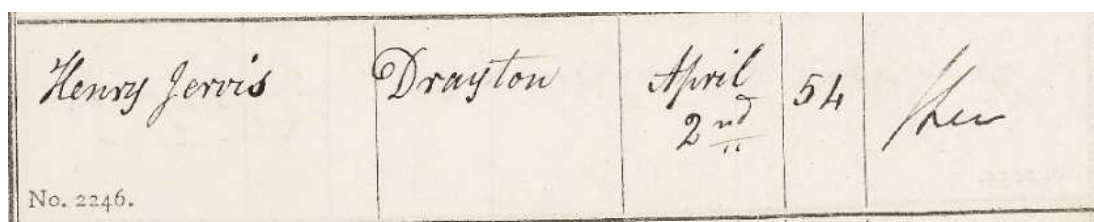 Henry Jervis Drayton April 54
2nd
No. 2246.